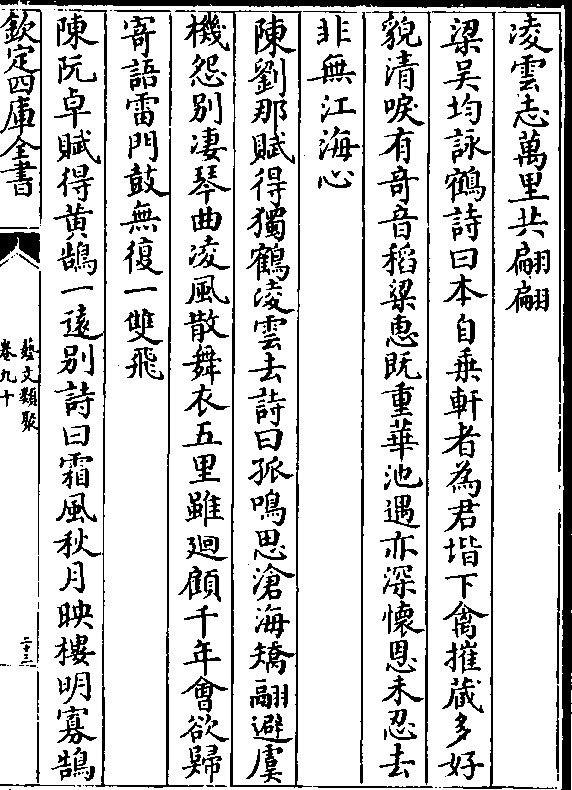 凌雲志萬里共翩翩
梁吴均詠鶴詩曰本自乗軒者為君堦下禽摧藏多好
貌清唳有竒音稻粱惠既重華池遇亦深懷恩未忍去
非無江海心
陳劉那賦得獨鶴凌雲去詩曰孤鳴思滄海矯翮避虞
機怨别凄琴曲凌風散舞衣五里雖廻顧千年會欲歸
寄語雷門鼓無復一雙飛
陳阮卓賦得黄鵠一遠别詩曰霜風秋月映樓明寡鵠
欽定四庫全書
藝文類聚
卷九十
二十三